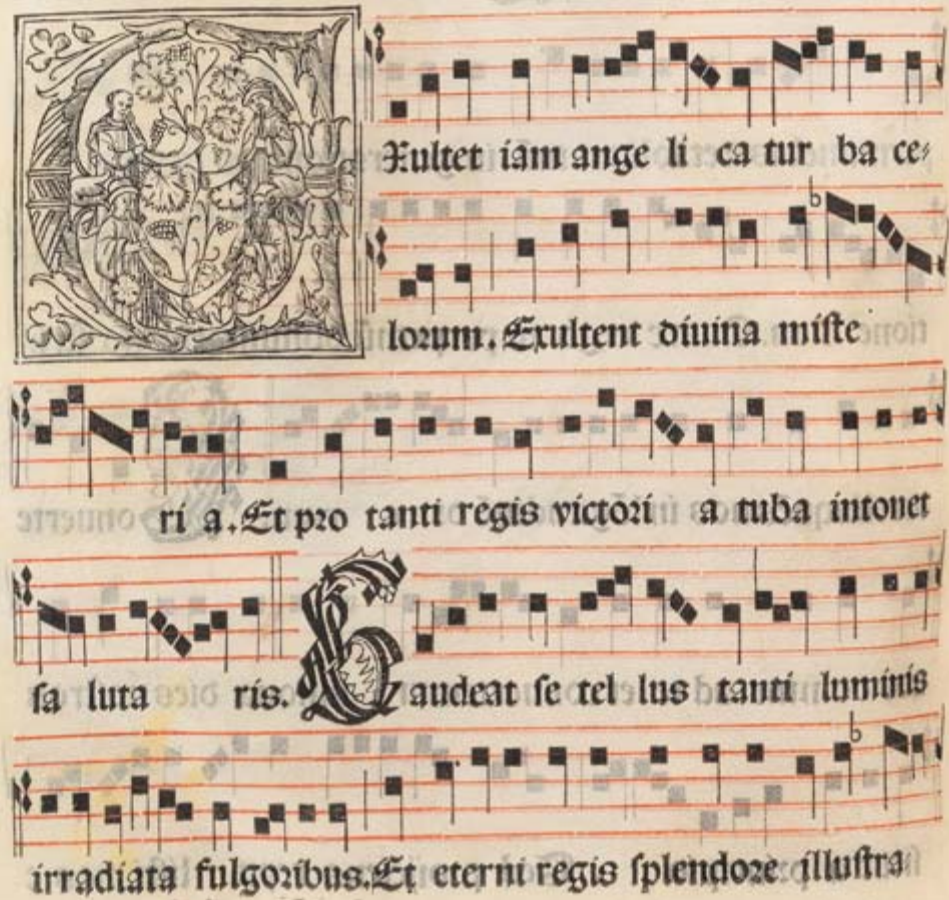 EXultet iam ange li ca tur ba ce⸗
lorum. Exultent diuina miste
ri a. Et pro tanti regis victori a tuba intonet
sa luta ris. Gaudeat se tel lus tanti luminis
irradiata fulgoribus. Et eterni regis splendore illustra